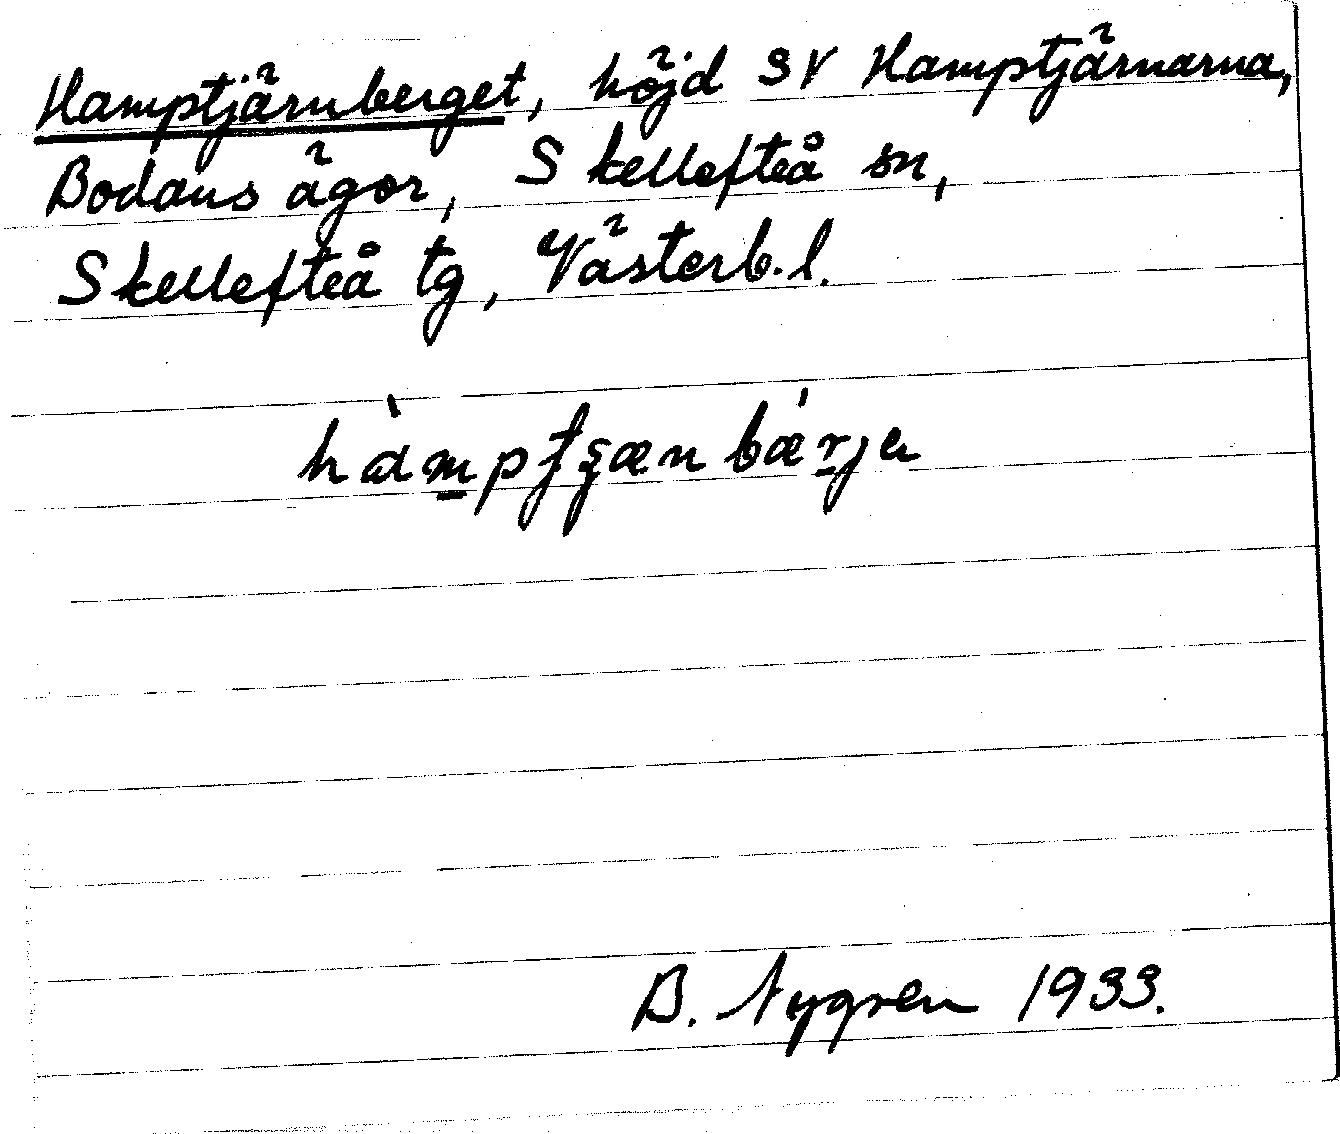 Hamptjärnberget, höjd SV Hamptjärnarna,
Bodans ägor, Skellefteå sn,
Skellefteå tg, Västerb. l.
hàm̲pʈʂænbáe̲rje
B. Nygren 1933.